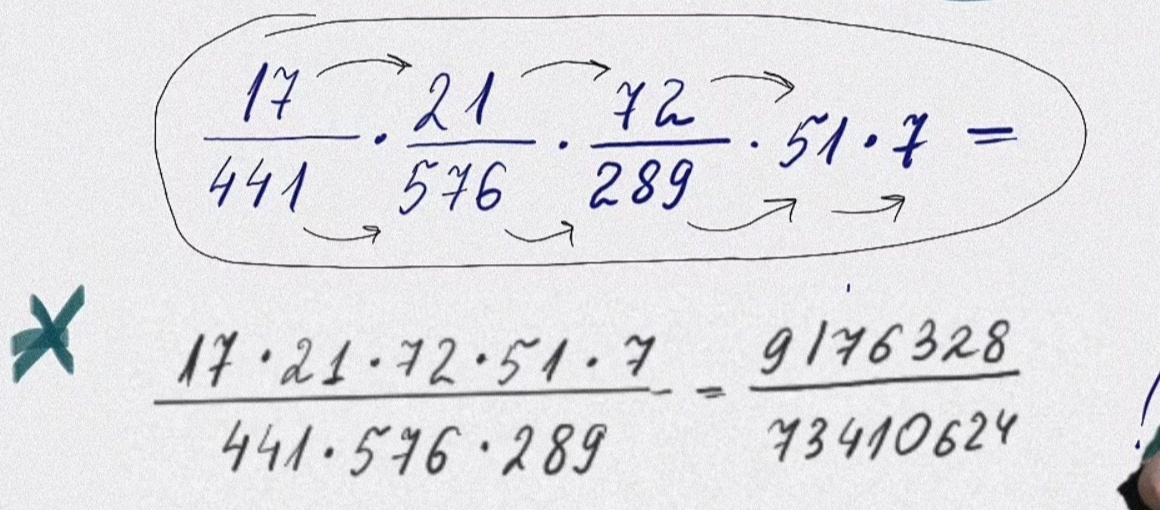 17/441 · 21/576 · 72/289 · 51 · 7 =
17 · 21 · 72 · 51 · 7 / 441 · 576 · 289 = 9176328 / 73410624